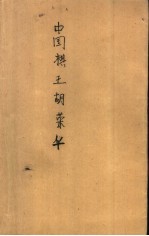 中国棋王胡荣华